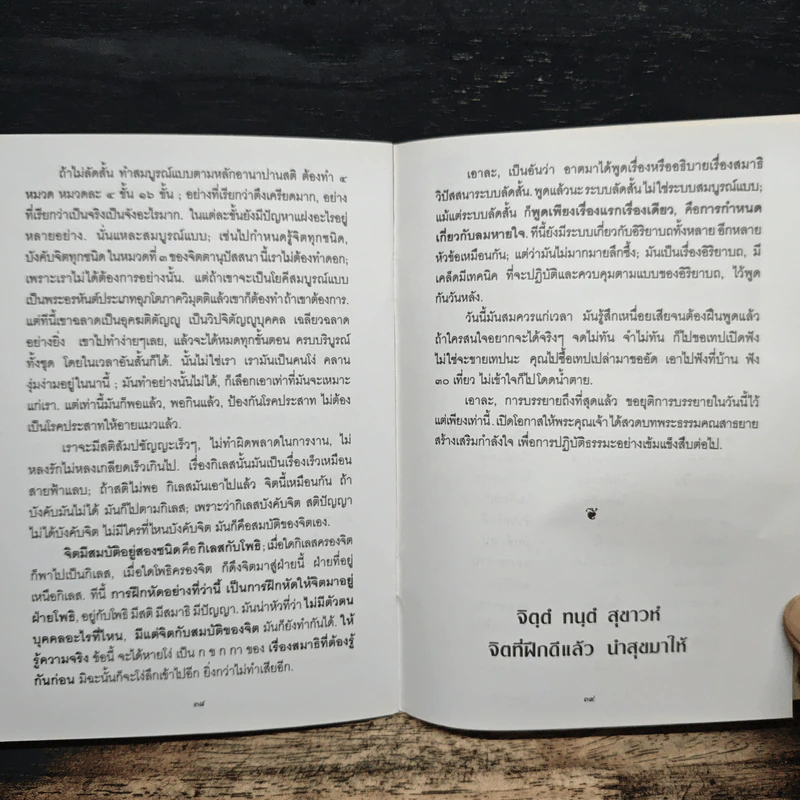 ถ้าไม่ลัดสั้น ทำสมบูรณ์แบบตามหลักอานาปานสติ ต้องทำ ๔
หมวด หมวดละ ๔ ขั้น ๑๖ ขั้น ; อย่างที่เรียกว่าตึงเครียดมาก, อย่าง
ที่เรียกว่าเป็นจริงเป็นจังอะไรมาก. ในแต่ละขั้นยังมีปัญหาแฝงอะไรอยู่
หลายอย่าง. นั่นแหละสมบูรณ์แบบ; เช่นไปกำหนดรู้จิตทุกชนิด,
บังคับจิตทุกชนิด ในหมวดที่ ๓ ของจิตตานุปัสสนา นี้เราไม่ต้องทำดอก;
เพราะเราไม่ได้ต้องการอย่างนั้น. แต่ถ้าเขาจะเป็นโยคีสมบูรณ์แบบ
เป็นพระอรหันต์ประเภทอุภโตภาควิมุตติแล้วเขาก็ต้องทำถ้าเขาต้องการ.
แต่ทีนี้เขาฉลาดเป็นอุคฆติตัญญู เป็นวิปจิตัญญูบุคคล เฉลียวฉลาด
อย่างยิ่ง เขาไปทำง่ายๆเลย, แล้วจะได้หมดทุกขั้นตอน ครบบริบูรณ์
ทั้งชุด โดยในเวลาอันสั้นก็ได้. นั้นไม่ใช่เรา เรามันเป็นคนโง่ คลาน
งุ่มง่ามอยู่ในนานี้ ; มันทำอย่างนั้นไม่ได้, ก็เลือกเอาเท่าที่มันจะเหมาะ
แก่เรา. แต่เท่านี้มันก็พอแล้ว, พอกินแล้ว, ป้องกันโรคประสาท ไม่ต้อง
เป็นโรคประสาทให้อายแมวแล้ว.
เราจะมีสติสัมปชัญญะเร็วๆ, ไม่ทำผิดพลาดในการงาน, ไม่
หลงรักไม่หลงเกลียดเร็วเกินไป. เรื่องกิเลสนั้นมันเป็นเรื่องเร็วเหมือน
สายฟ้าแลบ; ถ้าสติไม่พอ กิเลสมันเอาไปแล้ว จิตนี้เหมือนกัน ถ้า
บังคับมันไม่ได้ มันก็ไปตามกิเลส; เพราะว่ากิเลสบังคับจิต สติปัญญา
ไม่ได้บังคับจิต ไม่มีใครที่ไหนบังคับจิต มันก็คือสมบัติของจิตเอง.
จิตมีสมบัติอยู่สองชนิด คือ กิเลสกับโพธิ; เมื่อใดกิเลสครองจิต
ก็พาไปเป็นกิเลส, เมื่อใดโพธิครองจิต ก็ดึงจิตมาสู่ฝ่ายนี้ ฝ่ายที่อยู่
เหนือกิเลส. ทีนี้ การฝึกหัดอย่างที่ว่านี้ เป็นการฝึกหัดให้จิตมาอยู่
ฝ่ายโพธิ, อยู่กับโพธิ มีสติ มีสมาธิ มีปัญญา. มันน่าหัวที่ว่า ไม่มีตัวตน
บุคคลอะไรที่ไหน, มีแต่จิตกับสมบัติของจิต มันก็ยังทำกันได้. ให้
รู้ความจริง ข้อนี้ จะได้หายโง่ เป็น ก ข ก กา ของ เรื่องสมาธิที่ต้องรู้
กันก่อน มิฉะนั้นก็จะโง่ลึกเข้าไปอีก ยิ่งกว่าไม่ทำเสียอีก.
๓๘
เอาละ, เป็นอันว่า อาตมาได้พูดเรื่องหรืออธิบายเรื่องสมาธิ
วิปัสสนาระบบลัดสั้น. พูดแล้วนะ ระบบลัดสั้น ไม่ใช่ระบบสมบูรณ์แบบ;
แม้แต่ระบบลัดสั้น ก็พูดเพียงเรื่องแรกเรื่องเดียว, คือการกำหนด
เกี่ยวกับลมหายใจ. ทีนี้ยังมีระบบเกี่ยวกับอิริยาบถทั้งหลาย อีกหลาย
หัวข้อเหมือนกัน; แต่ว่ามันไม่มากมายลึกซึ้ง; มันเป็นเรื่องอิริยาบถ, มี
เคล็ดมีเทคนิค ที่จะปฏิบัติและควบคุมตามแบบของอิริยาบถ, ไว้พูด
กันวันหลัง.
วันนี้มันสมควรแก่เวลา มันรู้สึกเหนื่อยเสียจนต้องฝืนพูดแล้ว
ถ้าใครสนใจอยากจะได้จริงๆ จดไม่ทัน จำไม่ทัน ก็ไปขอเทปเปิดฟัง
ไม่ใช่จะขายเทปนะ คุณไปซื้อเทปเปล่ามาขออัด เอาไปฟังที่บ้าน ฟัง
๓๐ เที่ยว ไม่เข้าใจก็ไปโดดน้ำตาย.
เอาละ, การบรรยายถึงที่สุดแล้ว ขอยุติการบรรยายในวันนี้ไว้
แต่เพียงเท่านี้. เปิดโอกาสให้พระคุณเจ้า ได้สวดบทพระธรรมคณสาธยาย
สร้างเสริมกำลังใจ เพื่อการปฏิบัติธรรมะอย่างเข้มแข็งสืบต่อไป.
จิตฺตํ ทนฺตํ สุขาวหํ
จิตที่ฝึกดีแล้ว นำสุขมาให้
๓๙